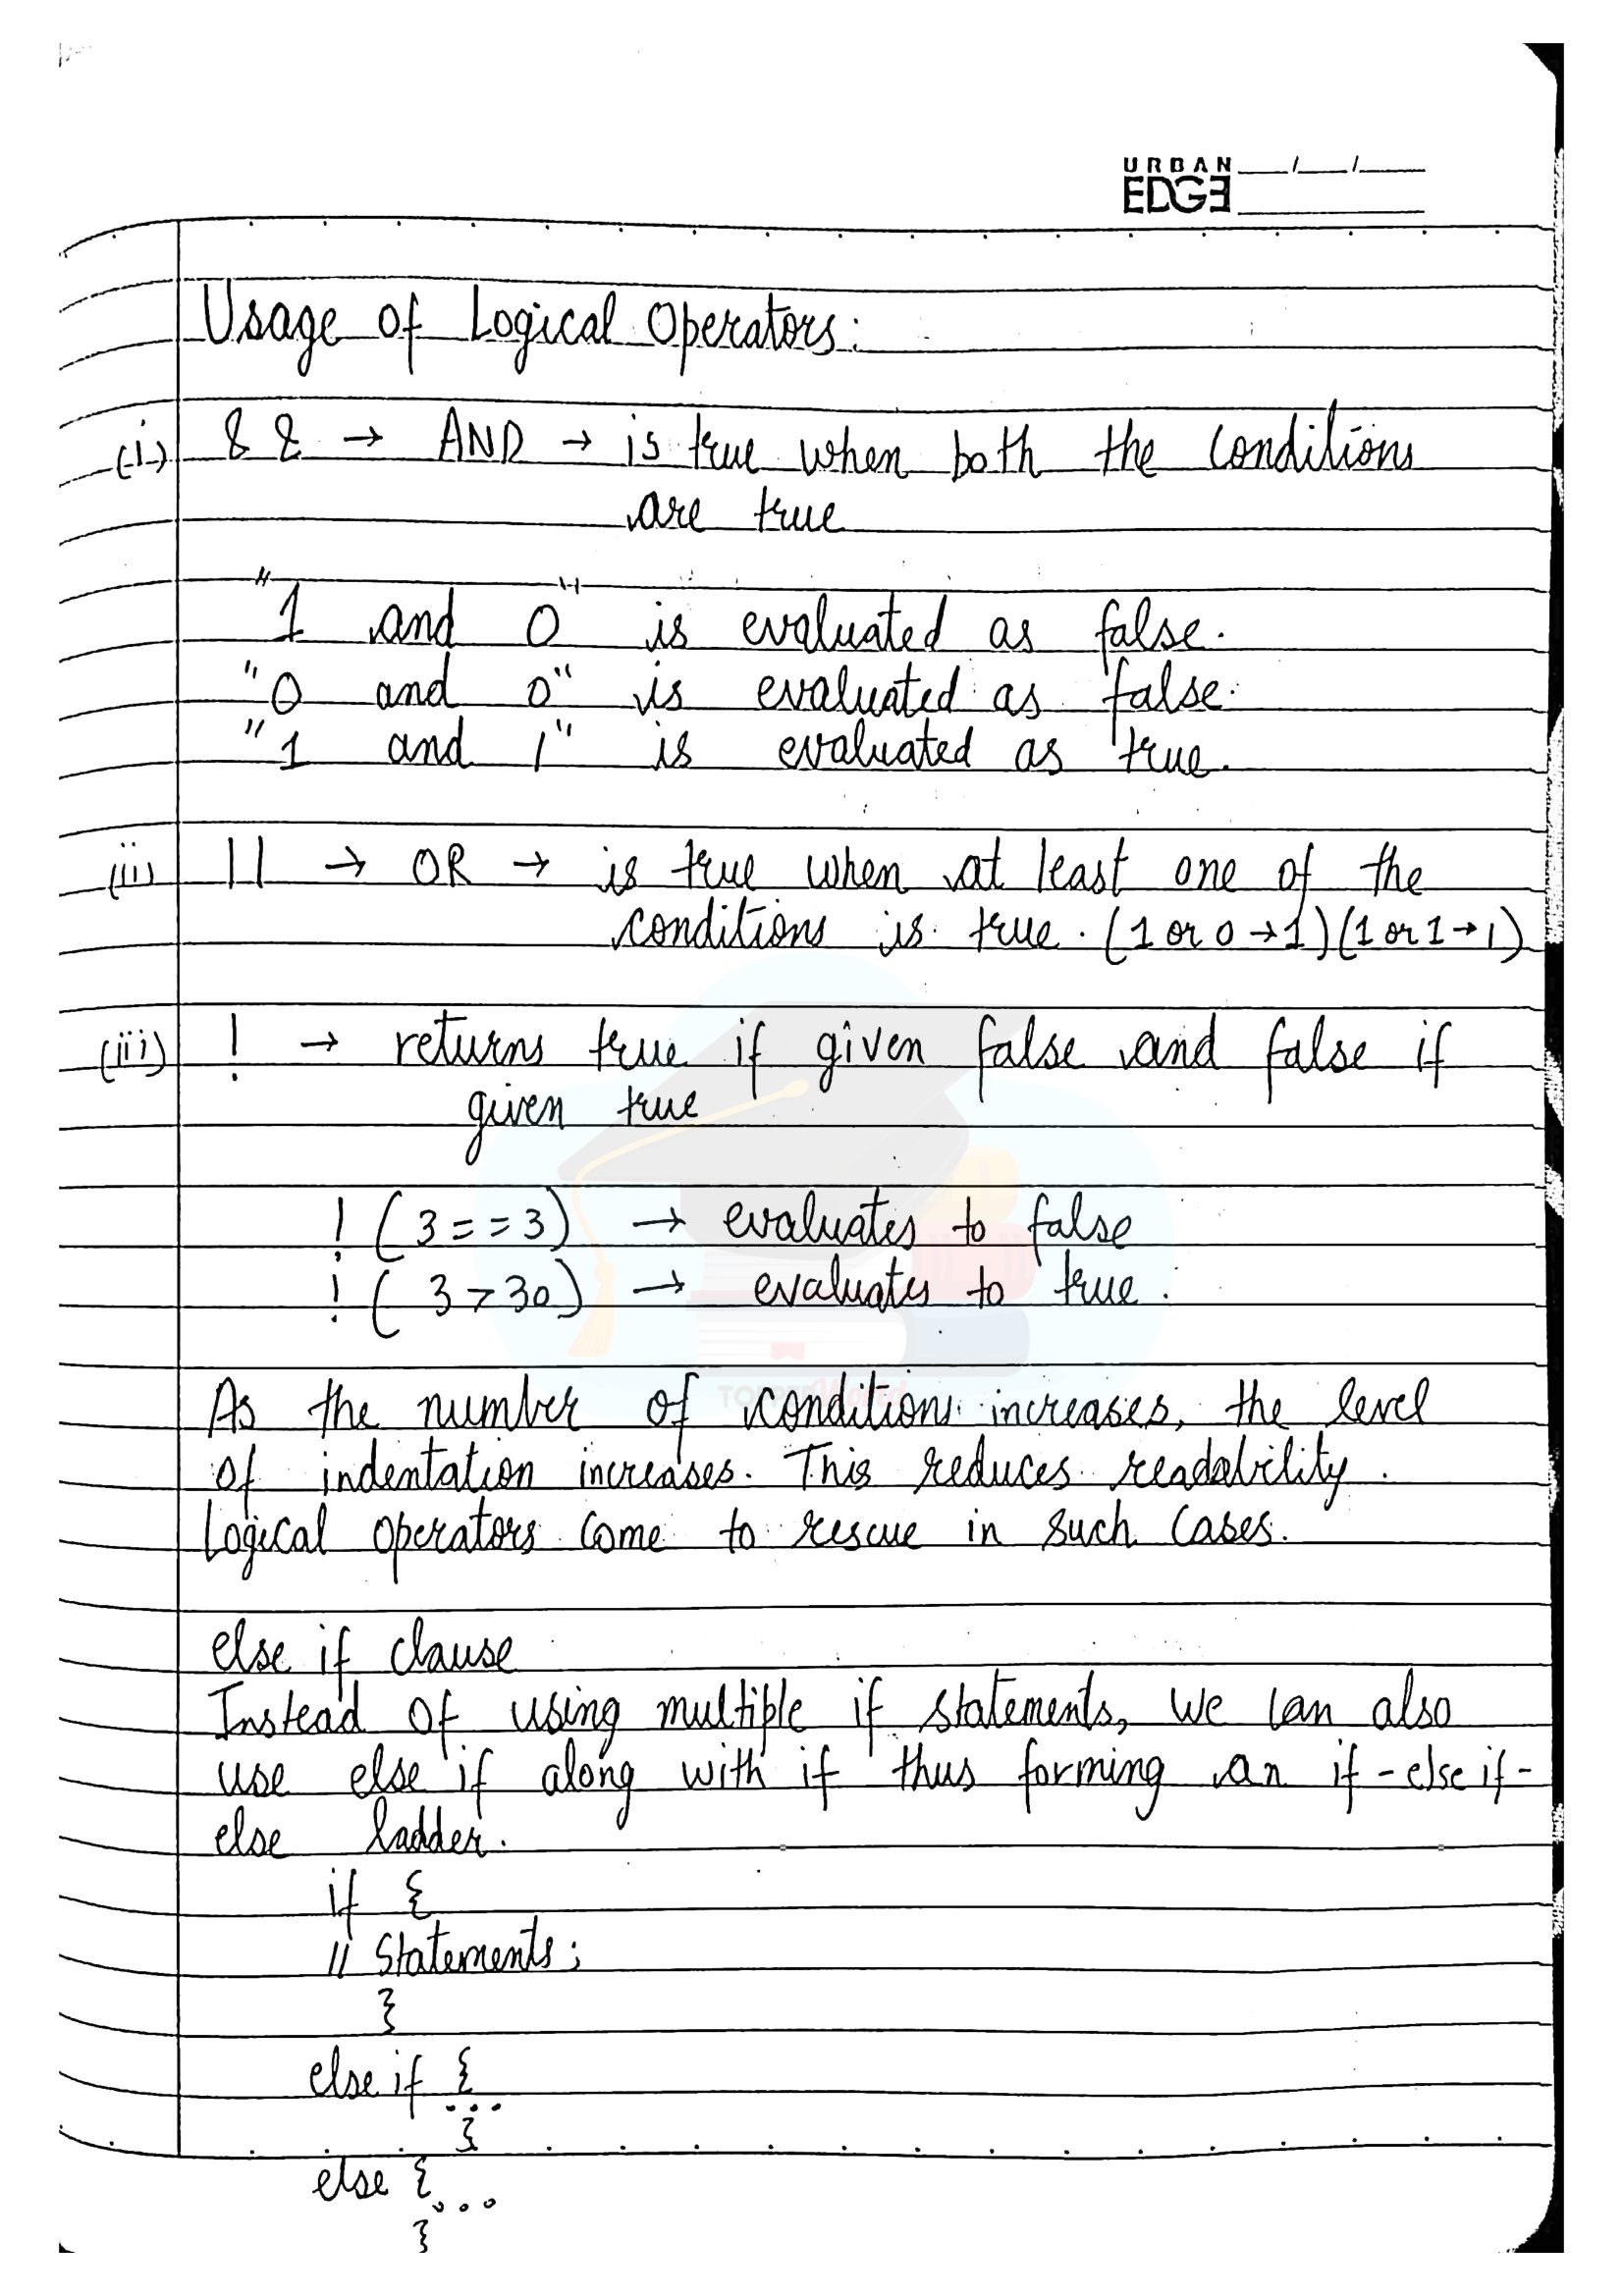 URBAN
EDGE
Usage of Logical Operators:
(i) && → AND → is true when both the conditions
are true
"1 and 0" is evaluated as false.
"0 and 0" is evaluated as false.
"1 and 1" is evaluated as true.
(ii) || → OR → is true when at least one of the
conditions is true. (1 or 0 → 1) (1 or 1 → 1)
(iii) ! → returns true if given false and false if
given true
! (3 == 3) → evaluates to false
! (3 > 30) → evaluates to true.
As the number of conditions increases, the level
of indentation increases. This reduces readability.
Logical operators come to rescue in such cases.
else if clause
Instead of using multiple if statements, we can also
use else if along with if thus forming an if - else if -
else ladder.
if {
// Statements;
}
else if {
...
}
else {
...
}